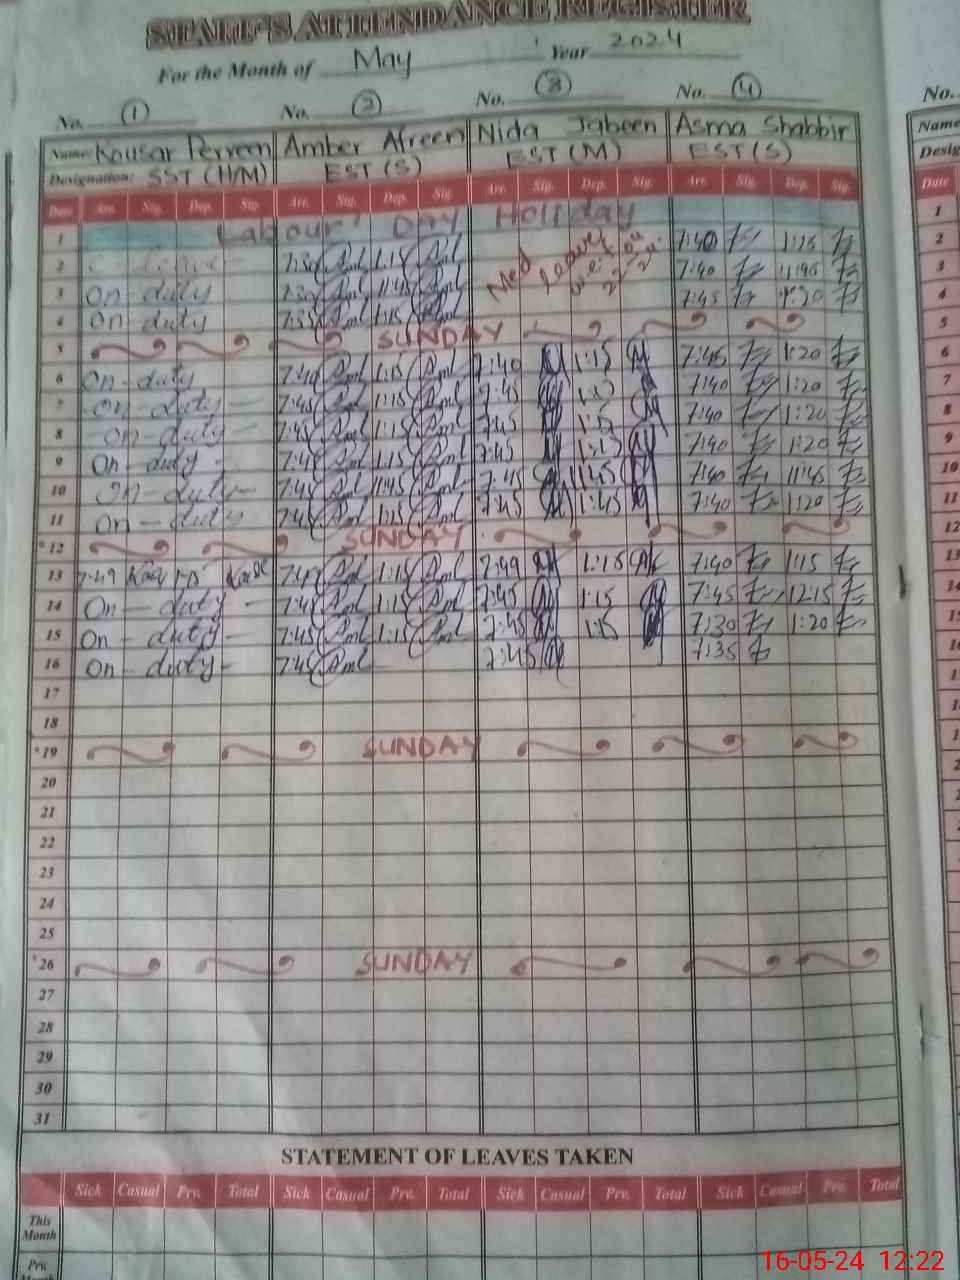 STAFF'S ATTENDANCE REGISTER
For the Month of May Year 2024
No. 1 No. 2 No. 3 No. 4 No.
Name: Kousar Perveen Amber Afreen Nida Jabeen Asma Shabbir Name
Designation: SST (H/M) EST (S) EST (M) EST (S) Desig
Date Arr. Sig. Dep. Sig. Arr. Sig. Dep. Sig. Arr. Sig. Dep. Sig. Arr. Sig. Dep. Sig. Date
1 Labour Day Holiday 1
2 leave 7:30 1:15 Med leave w.e.f 7:40 1:15 2
3 On duty 7:30 11:45 7:40 11:45 3
4 On duty 7:35 1:15 7:45 1:20 4
5 SUNDAY 5
6 On-duty 7:40 1:15 7:40 1:15 7:45 1:20 6
7 On-duty 7:45 1:15 7:45 1:15 7:40 1:20 7
8 On-duty 7:45 1:15 7:45 1:15 7:40 1:20 8
9 On duty 7:45 1:15 7:45 1:15 7:40 1:20 9
10 On-duty 7:45 11:45 7:45 11:45 7:40 11:45 10
11 On-duty 7:45 1:15 7:45 1:45 7:40 1:20 11
*12 SUNDAY 12
13 7:49 1:15 7:45 1:15 7:49 1:15 7:40 1:15 13
14 On-duty 7:45 1:15 7:45 1:15 7:45 12:15 14
15 On-duty 7:45 1:15 7:45 1:15 7:30 1:20 15
16 On-duty 7:45 7:45 7:35
17
18
*19 SUNDAY
20
21
22
23
24
25
*26 SUNDAY
27
28
29
30
31
STATEMENT OF LEAVES TAKEN
Sick Casual Prv. Total Sick Casual Prv. Total Sick Casual Prv. Total Sick Casual Prv. Total
This
Month
Prv.
Month
16-05-24 12:22